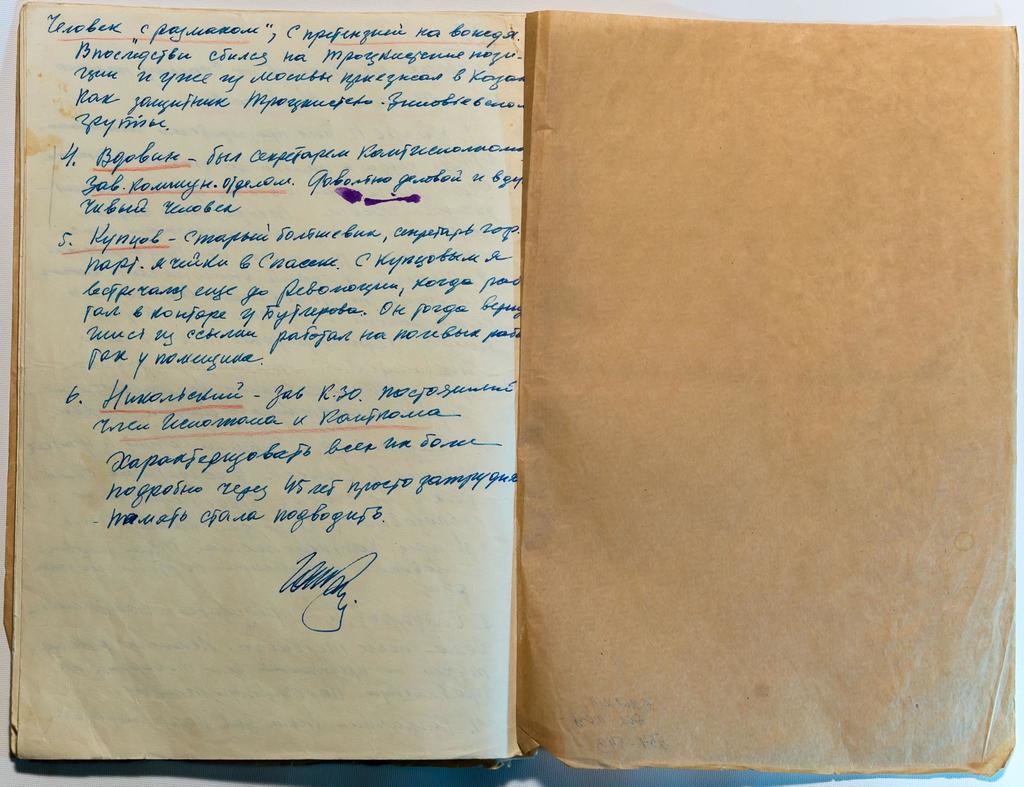 Человек „с размахом", с претензией на вождя.
Впоследствии сбился на троцкистские пози-
ции и уже из Москвы приезжал в Казан
как защитник Троцкистско-Зиновьевской
группы.
4. Вдовин - был секретарем Кантисполкома
Зав. коммун. отделом. Довольно деловой и вду
чивый человек
5. Купцов - старый большевик, секретарь гор.
парт. ячейки в Спасске. С Купцовым я
встречался еще до Революции, когда рабо
тал в конторе у Бутлерова. Он тогда верну
шись из ссылки работал на полевых рабо
тах у помещика.
6. Никольский - зав К.З.О. постоянный
член Исполкома и Канткома
Характеризовать всех их более
подробно через 45 лет просто затрудня
- память стала подводить.